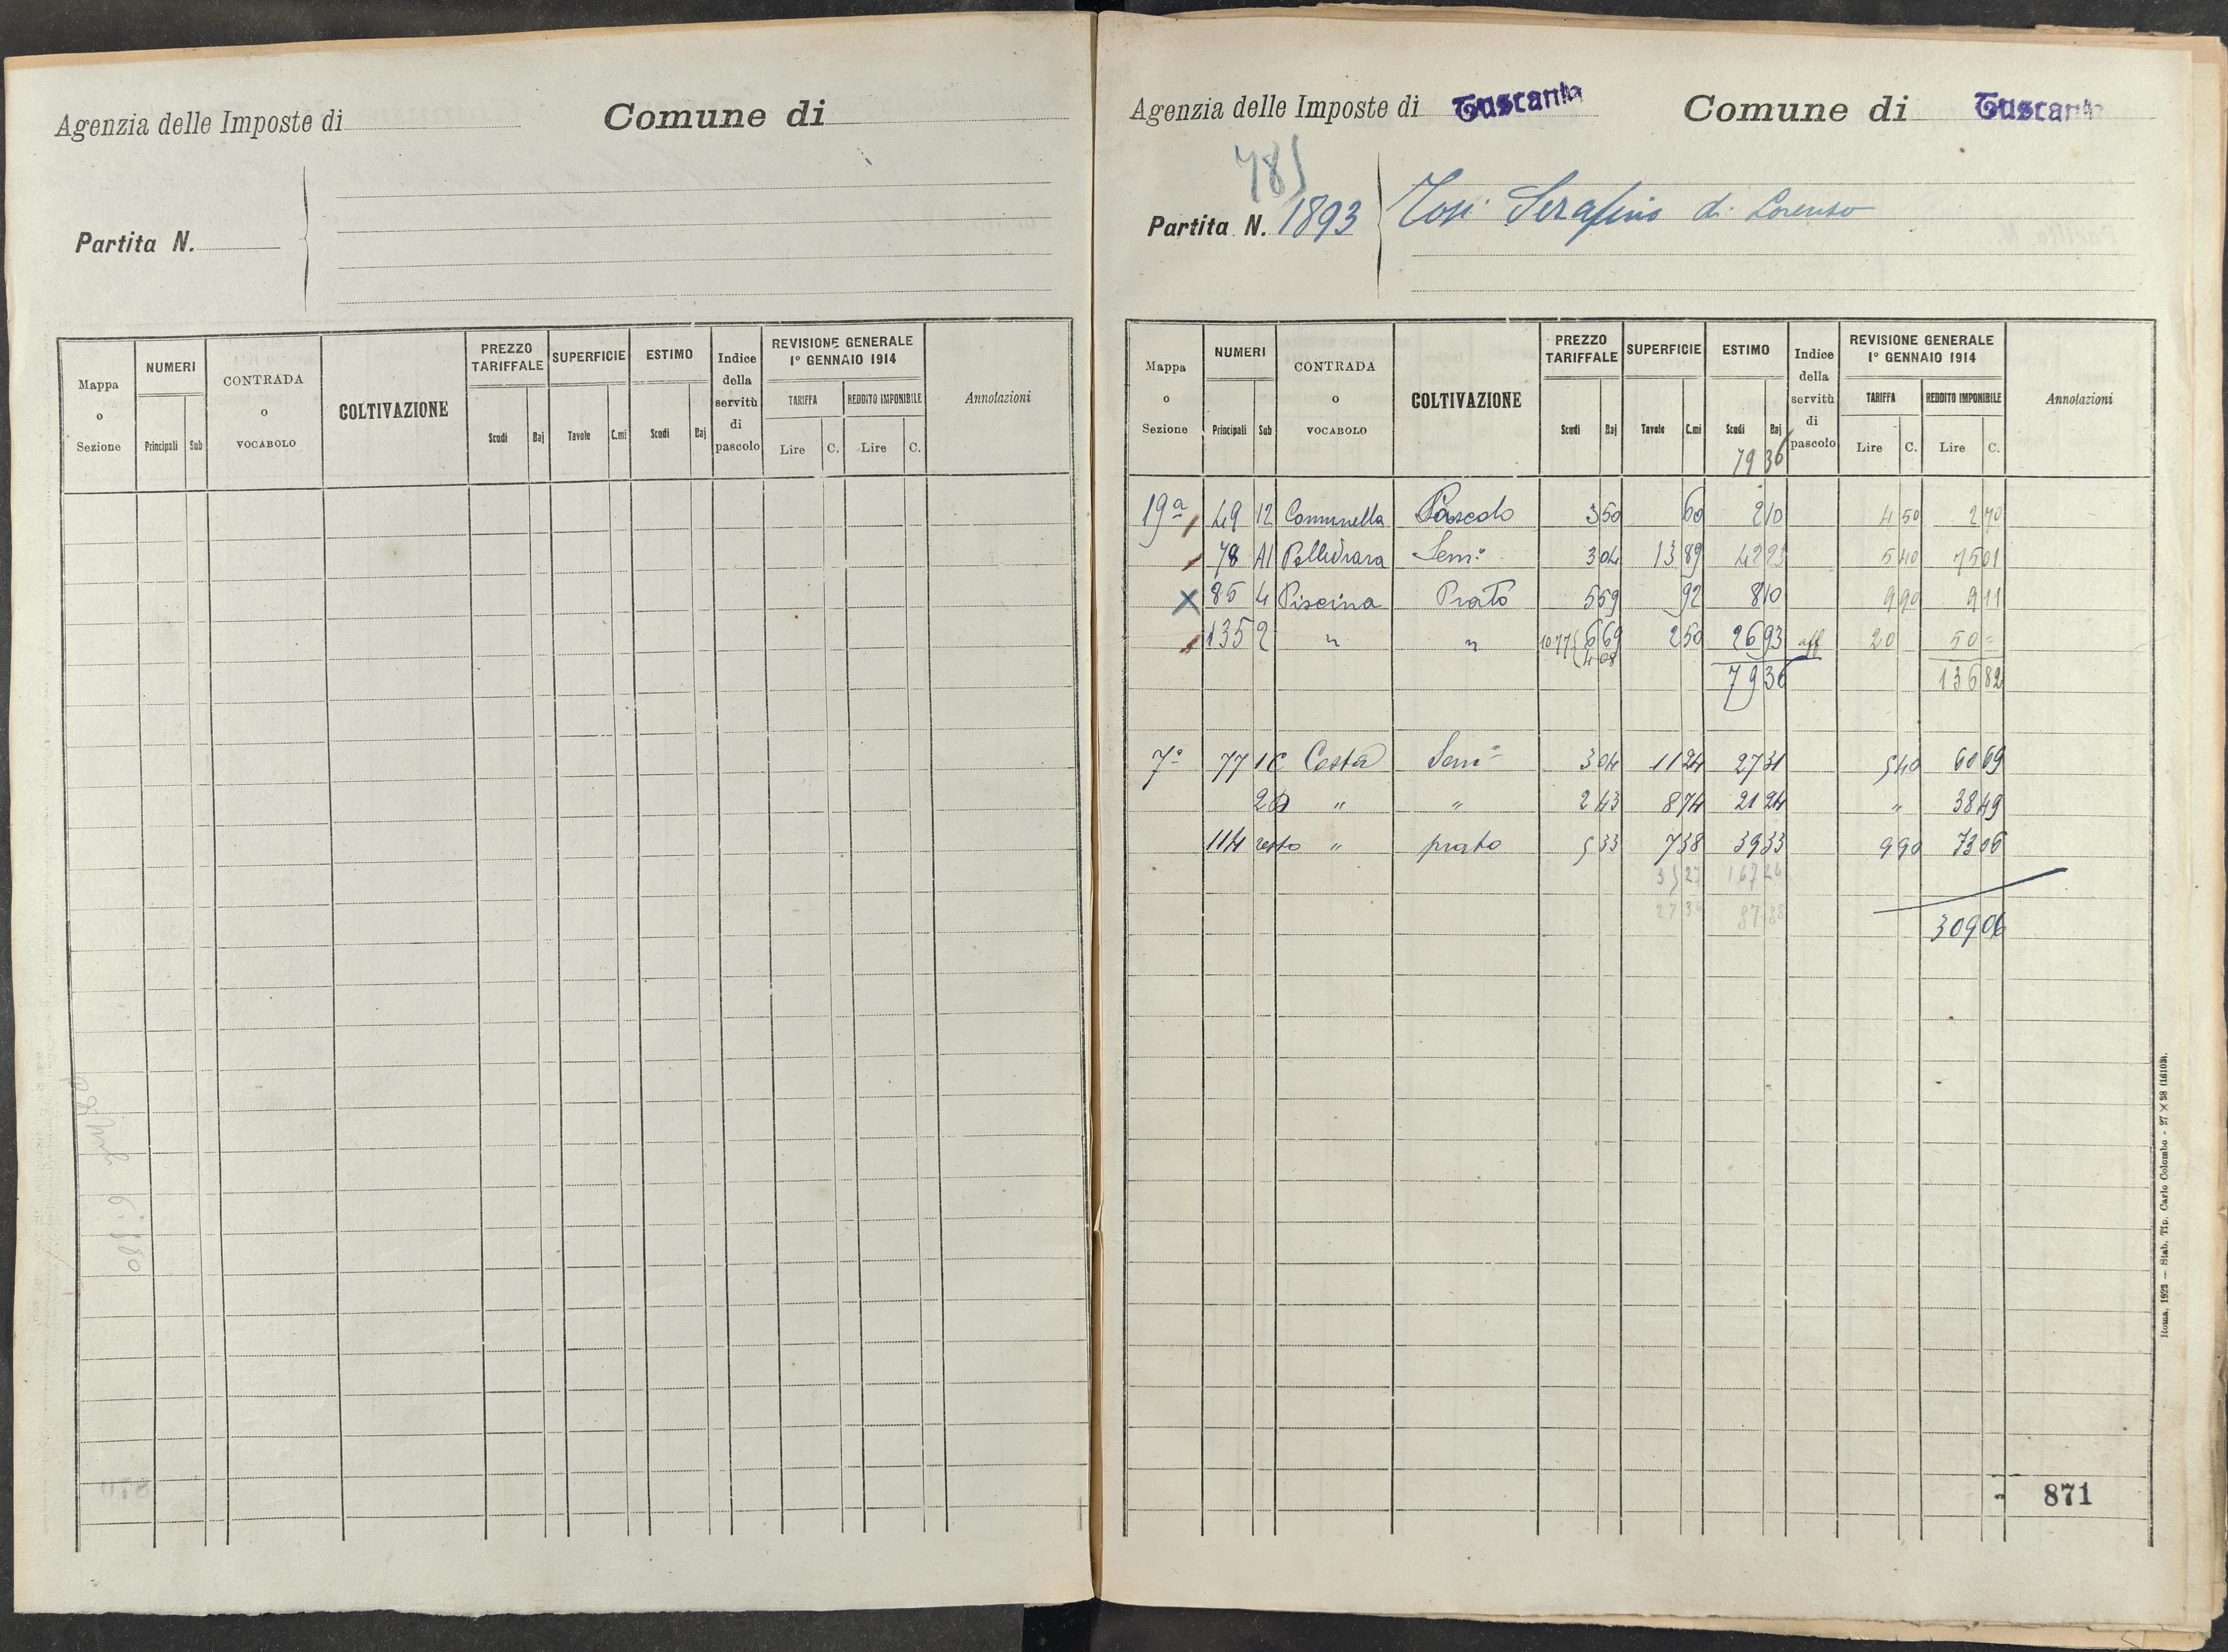 Agenzia delle Imposte di Comune di
Partita N.
Mappa o Sezione NUMERI Principali Sub CONTRADA O VOCABOLO COLTIVAZIONE PREZZO TARIFFALE Scudi Baj SUPERFICIE Tavole C.mi ESTIMO Scudi Baj Indice della servitù di pascolo REVISIONE GENERALE 1° GENNAIO 1914 TARIFFA Lire C. REDDITO IMPONIBILE Lire C. Annotazioni
Agenzia delle Imposte di Tuscania Comune di Tuscania
785
Partita N. 1893 Tosi Serafino di Lorenzo
Mappa o Sezione NUMERI Principali Sub CONTRADA O VOCABOLO COLTIVAZIONE PREZZO TARIFFALE Scudi Baj SUPERFICIE Tavole C.mi ESTIMO Scudi Baj Indice della servitù di pascolo REVISIONE GENERALE 1° GENNAIO 1914 TARIFFA Lire C. REDDITO IMPONIBILE Lire C. Annotazioni
79 36
19a 49 12 Comunella Pascolo 3 50 60 2 10 4 50 2 70
78 A1 Pollidrara Sem.o 3 04 13 89 42 23 5 40 75 01
X 85 4 Piscina Prato 5 59 92 8 10 9 90 9 11
135 2 " " 10 77 { 6 69 2 50 26 93 aff 20 50 =
4 08
79 36 136 82
7a 77 1C Costa Sem.o 3 04 11 24 27 31 5 40 60 69
2 " " 2 43 8 74 21 24 " 38 49
114 resto " prato 5 33 7 38 39 33 9 90 73 06
35 27 167 24
27 36 87 88
309 06
871
Roma, 1923 — Stab. Tip. Carlo Colombo - 27 × 38 (16103).